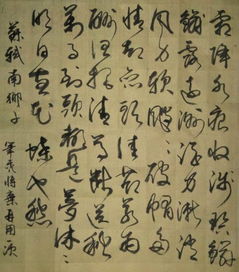 霜降水痕收淺碧鱗
鱗露遠洲酒力漸消
風力軟颼颼破帽多
情却戀頭佳節若為
酬但把清尊斷送秋
萬事到頭都是夢休
休明日黃花蝶也愁
蘇軾南鄉子